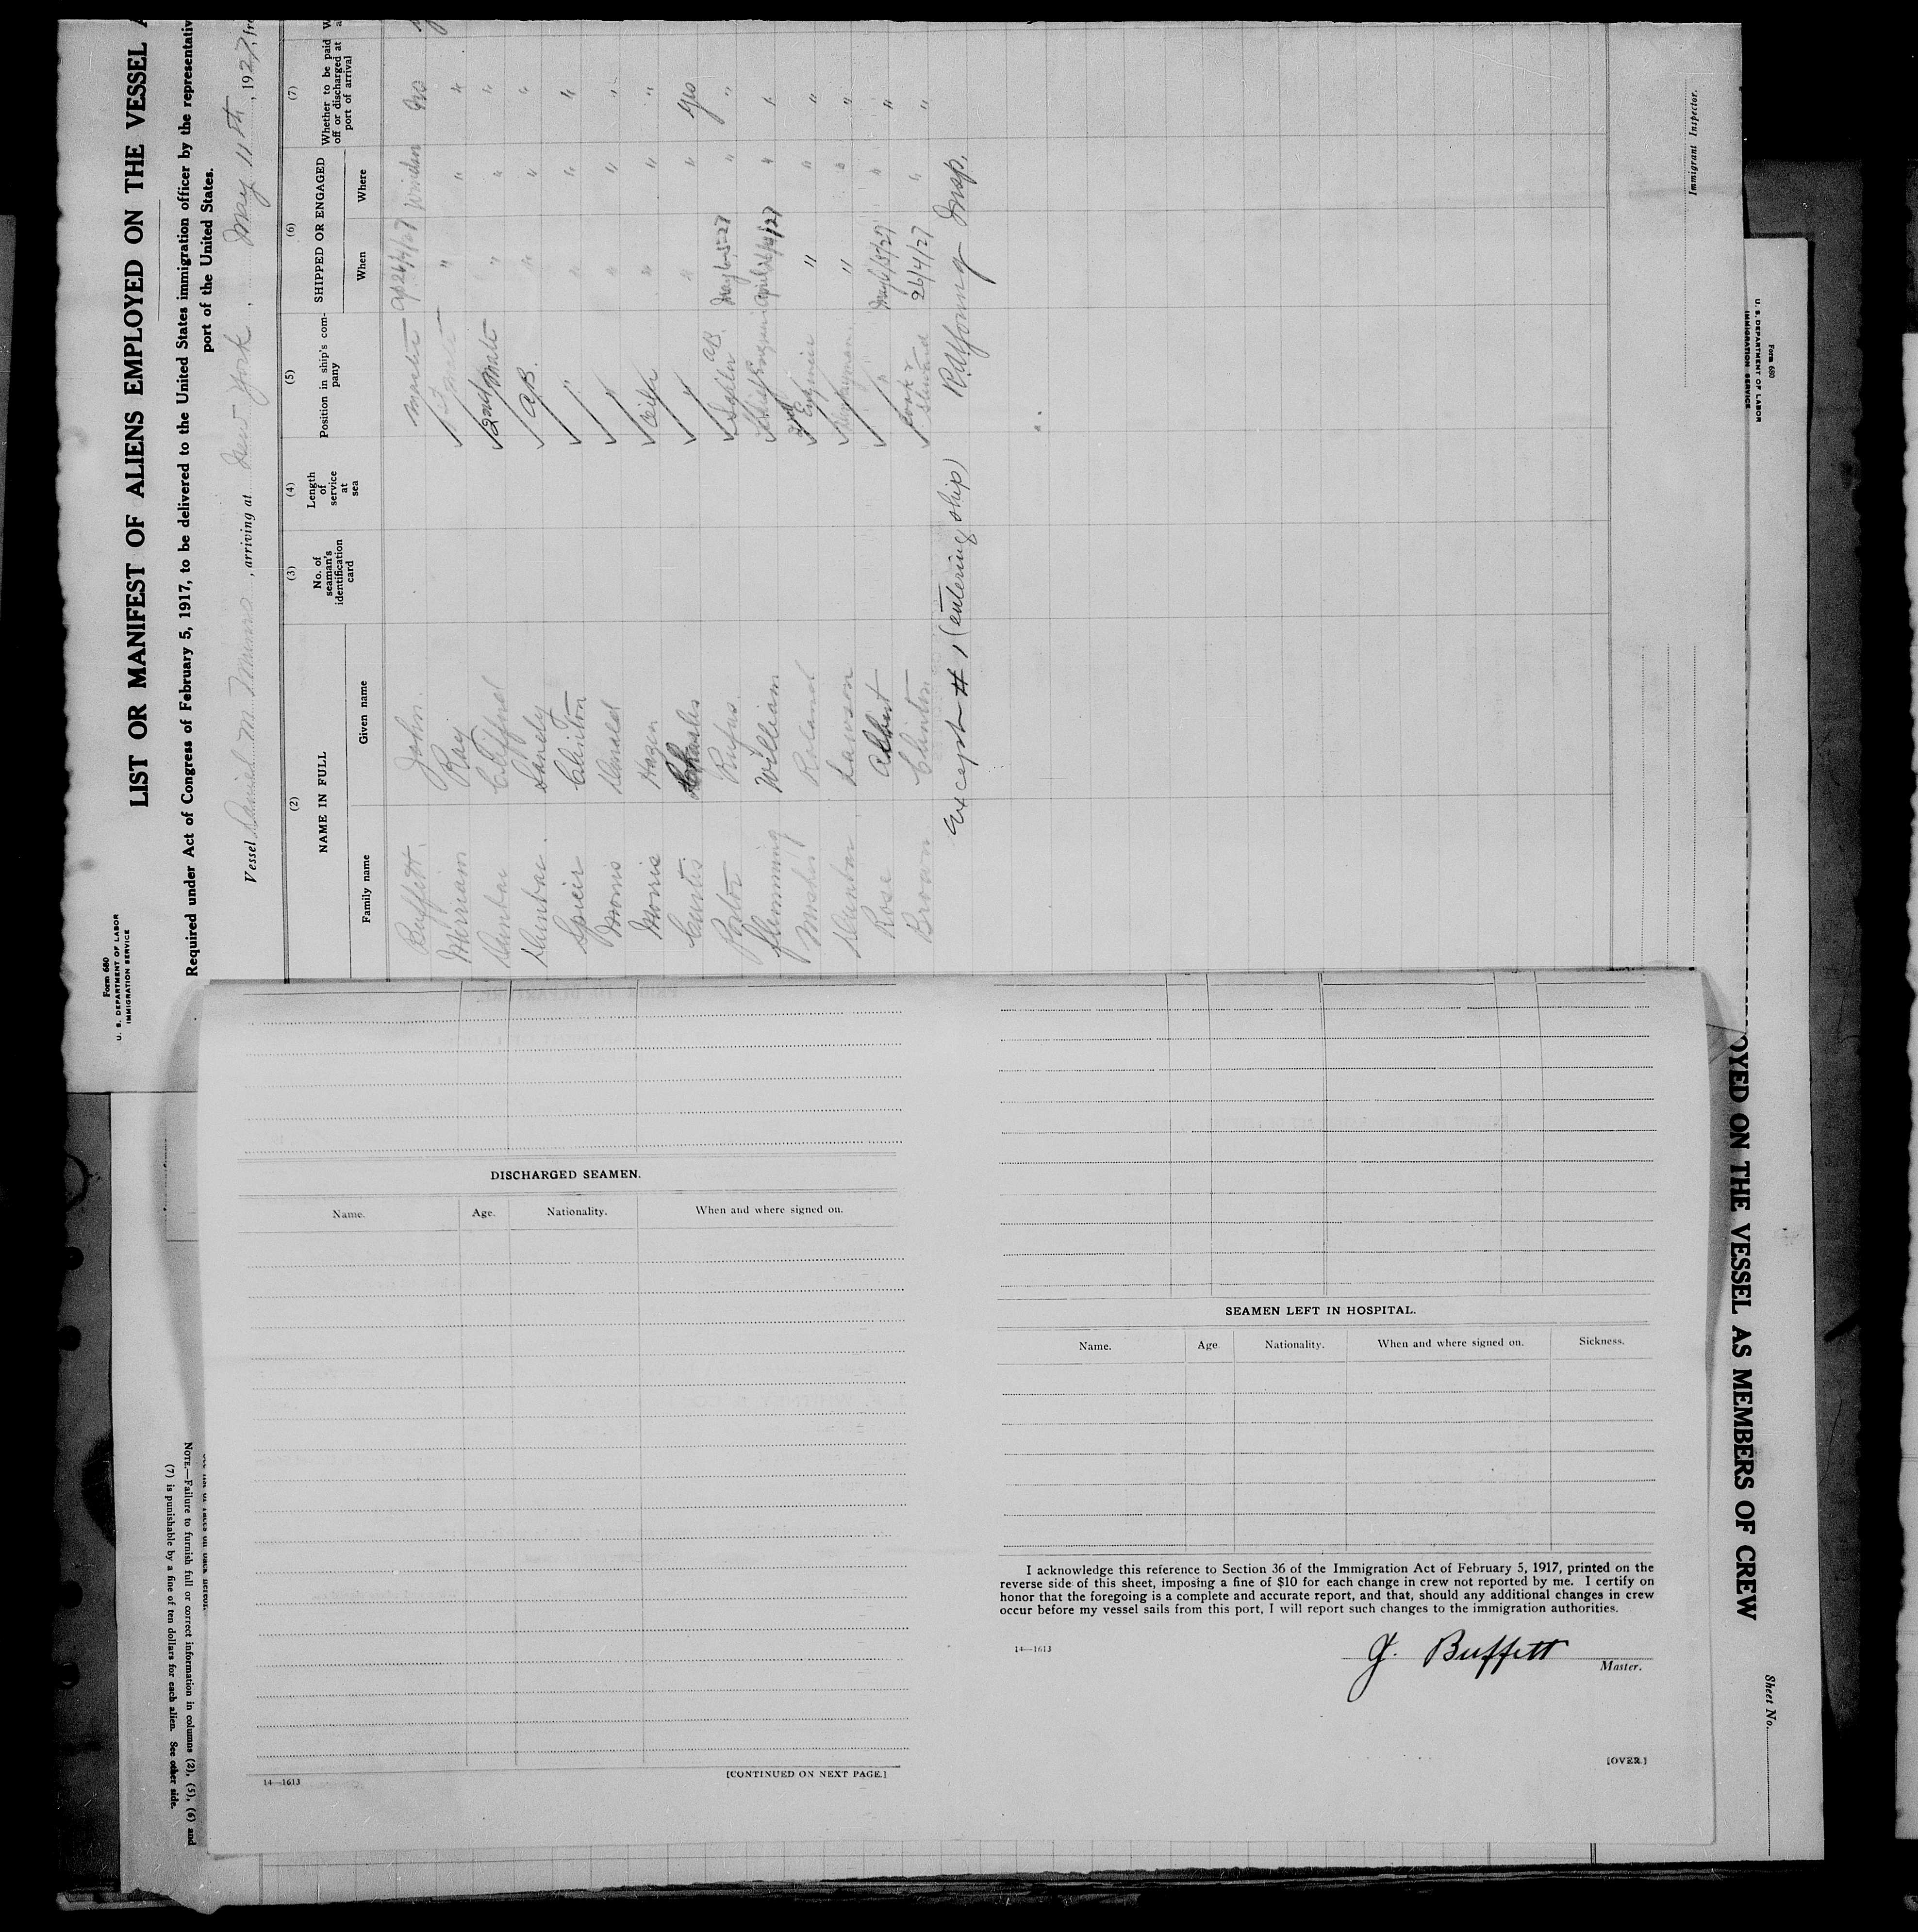 Form 680
U. S. DEPARTMENT OF LABOR
IMMIGRATION SERVICE
LIST OR MANIFEST OF ALIENS EMPLOYED ON THE VESSEL A
Required under Act of Congress of February 5, 1917, to be delivered to the United States immigration officer by the representativ
port of the United States.
Vessel Daniel M. Munro, arriving at New York, May 11th, 1927, fro
(2) (3) (4) (5) (6) (7)
NAME IN FULL
Family name Given name
No. of seaman's identification card
Length of service at sea
Position in ship's company
SHIPPED OR ENGAGED
When Where
Whether to be paid off or discharged at port of arrival
Buffett. John. Master Ap 26/4/27 Windsor No
Merriam Ray 1st Mate " " "
Dunbar Clifford 2nd Mate " " "
Dunbar. Sandy A.B. " " "
Speir Clinton " " " "
Morris Donald " " " "
Morris Hazen " " "
Curtis Charles " " " yes
Porter Rufus. A.B. May 6-5-27 " "
Flemming William Chief Engineer April 26/4/27 " "
Mosher Roland 2nd Engineer " " "
Dunbar Lawson " " "
Rose Albert " May 6/5/27 " "
Brown Clinton Cook & Steward 26/4/27 " "
Except # 1 (entering ship) Insp.
Immigrant Inspector.
DISCHARGED SEAMEN.
Name. Age. Nationality. When and where signed on.
14—1613
[CONTINUED ON NEXT PAGE.]
SEAMEN LEFT IN HOSPITAL.
Name. Age Nationality. When and where signed on. Sickness.
I acknowledge this reference to Section 36 of the Immigration Act of February 5, 1917, printed on the
reverse side of this sheet, imposing a fine of $10 for each change in crew not reported by me. I certify on
honor that the foregoing is a complete and accurate report, and that, should any additional changes in crew
occur before my vessel sails from this port, I will report such changes to the immigration authorities.
14—1613
J. Buffett
Master.
[OVER.]
NOTE.—Failure to furnish full or correct information in columns (2), (5), (6) and
(7) is punishable by a fine of ten dollars for each alien. See other side.
Form 680
U. S. DEPARTMENT OF LABOR
IMMIGRATION SERVICE
OYED ON THE VESSEL AS MEMBERS OF CREW
Sheet No.